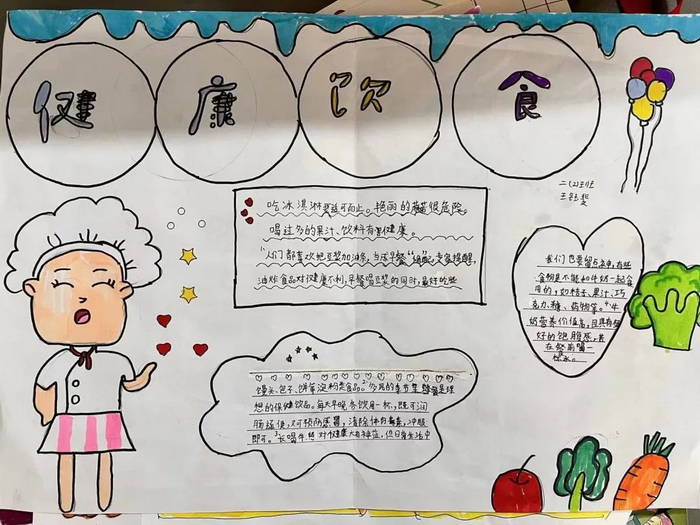 健康饮食
二(2)班
王钰
吃冰淇淋要适可而止。艳丽的蘑菇很危险。
喝过多的果汁、饮料有害健康。
人们都喜欢把豆浆加油条,当成早餐"绝配",专家提醒,
油炸食品对健康不利,早餐喝豆浆的同时,最好的吃
馒头、包子、饼等淀粉类食品。多风的季节里蜂蜜是理
想的保健饮品。每天早晚各饮用一杯,既可润
肠通便,又可预防感冒,清除体内毒素,冲服
即可。长喝牛奶对健康大有裨益,但日常生活中
我们也要留点神,有些
食物是不能和牛奶一起食
用的,如桔子、果汁、巧
克力、糖、药物等。牛
奶营养价值高,且具有很
好的饱腹感,最
在餐前喝一
杯水。